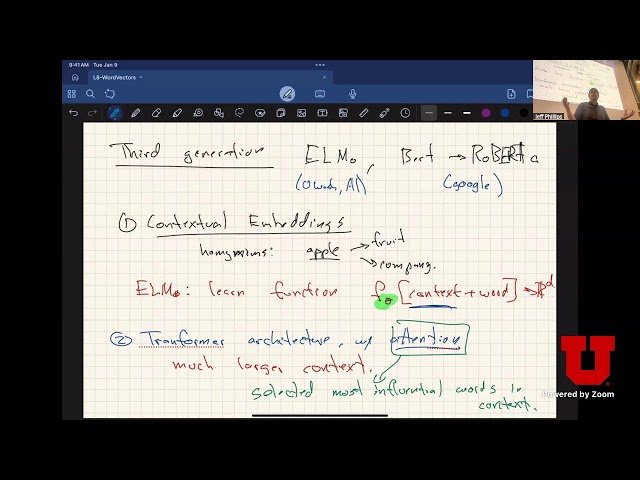 9:41 AM Tue Jan 9
L8-WordVectors
Jeff Phillips
Third generation ELMo, Bert → RoBERTa
(Google)
① Contextual Embeddings
apple → fruit
→ company.
ELMo: learn function fθ [context + word] → ℝd
② Tranformer architecture, w/ attention
much larger context.
selected most influential words in
context.
U
Powered by Zoom